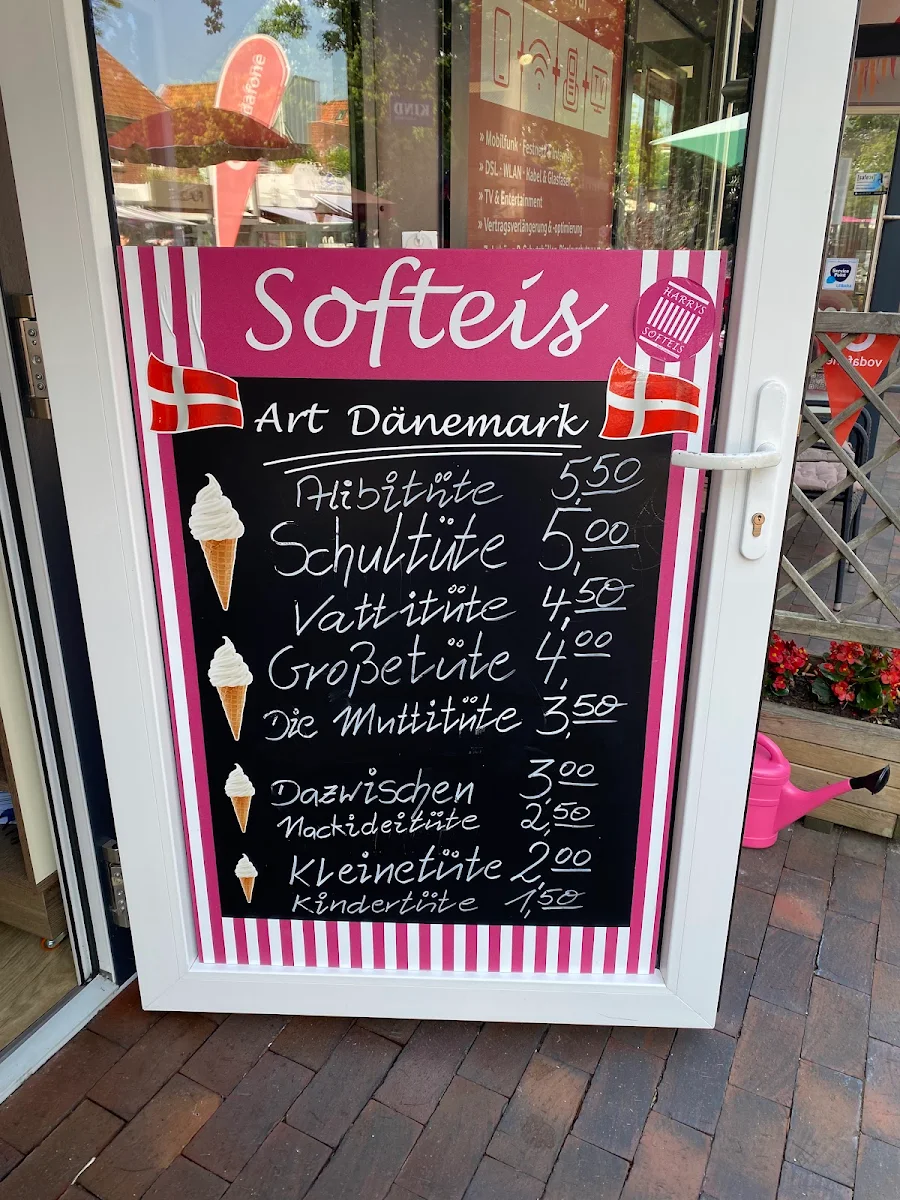 vodafone
KIND
» Mobilfunk · Festnetz & Internet
» DSL · WLAN · Kabel & Glasfaser
» TV & Entertainment
» Vertragsverlängerung & -optimierung
Softeis
HARRYS
SOFTEIS
Art Dänemark
Alibitüte 5,50
Schultüte 5,00
Vattitüte 4,50
Großetüte 4,00
Die Muttitüte 3,50
Dazwischen 3,00
Nackideitüte 2,50
Kleinetüte 2,00
Kindertüte 1,50
Service
Point
vodafone